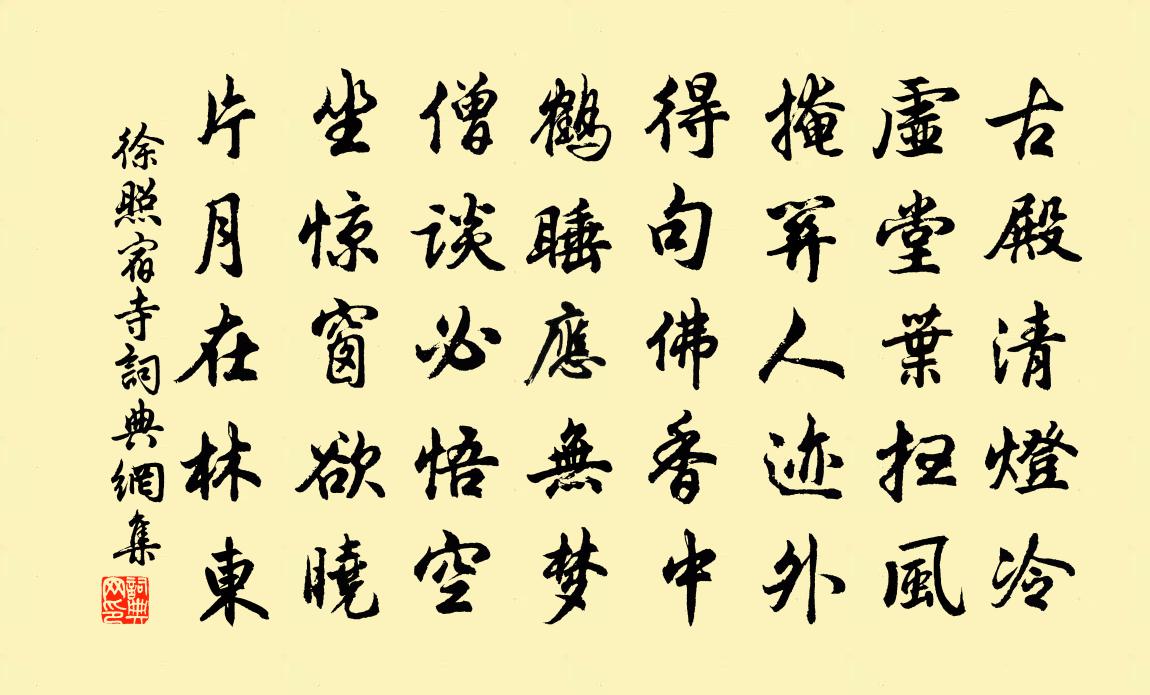 古殿清燈冷
虛堂葉扫風
掩关人迹外
得句佛香中
鶴睡應無梦
僧谈必悟空
坐惊窗欲曉
片月在林東
徐照宿寺詞典網集
詞典
网印